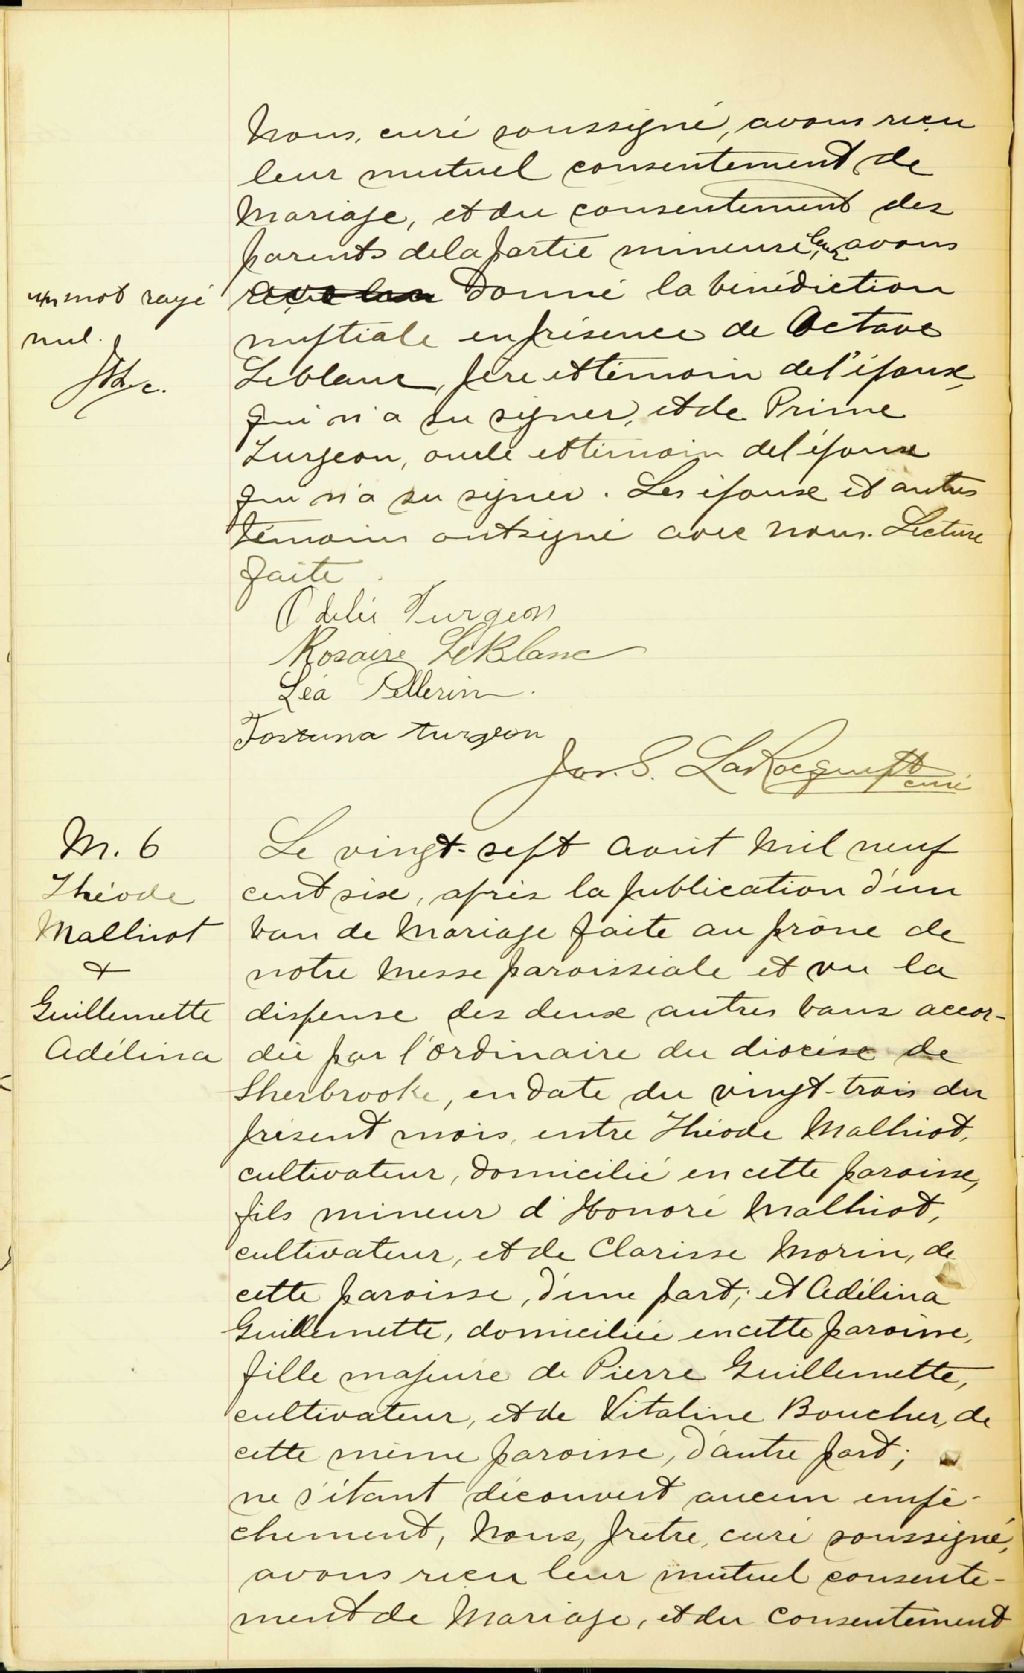 Nous, curé soussigné, avons reçu
leur mutuel consentement de
Mariage, et du consentement des
parents de la partie mineure, leur avons
un mot rayé
nul.
donné la bénédiction
nuptiale en présence de Octave
Leblanc, père et témoin de l'époux,
qui n'a su signer, et de Prime
Turgeon, oncle et témoin de l'épouse
qui n'a su signer. Les époux et autres
témoins ont signé avec nous. Lecture
faite.
Odélie Turgeon
Rosaire LeBlanc
Léa Pellerin.
Fortuna turgeon
Jos. S. LaRocque Ptre
curé
M. 6
Théode
Malhiot
&
Guillemette
Adélina
Le vingt-sept Août Mil neuf
cent six, après la publication d'un
ban de Mariage faite au prône de
notre Messe paroissiale et vu la
dispense des deux autres bans accor-
dée par l'Ordinaire du diocèse de
Sherbrooke, en date du vingt-trois du
présent mois, entre Théode Malhiot,
cultivateur, domicilié en cette paroisse,
fils mineur d'Honoré Malhiot,
cultivateur, et de Clarisse Morin, de
cette paroisse, d'une part; et Adélina
Guillemette, domiciliée en cette paroisse,
fille majeure de Pierre Guillemette,
cultivateur, et de Vitaline Boucher, de
cette même paroisse, d'autre part;
ne s'étant découvert aucun empê-
chement, Nous, prêtre, curé soussigné,
avons reçu leur mutuel consente-
ment de Mariage, et du consentement